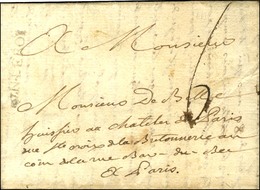 A Monsieur
Monsieur De B
huissier au chatelet de Paris
rue Ste croix de la Bretonnerie au
coin de la rue Bar-du-Bec
A Paris.